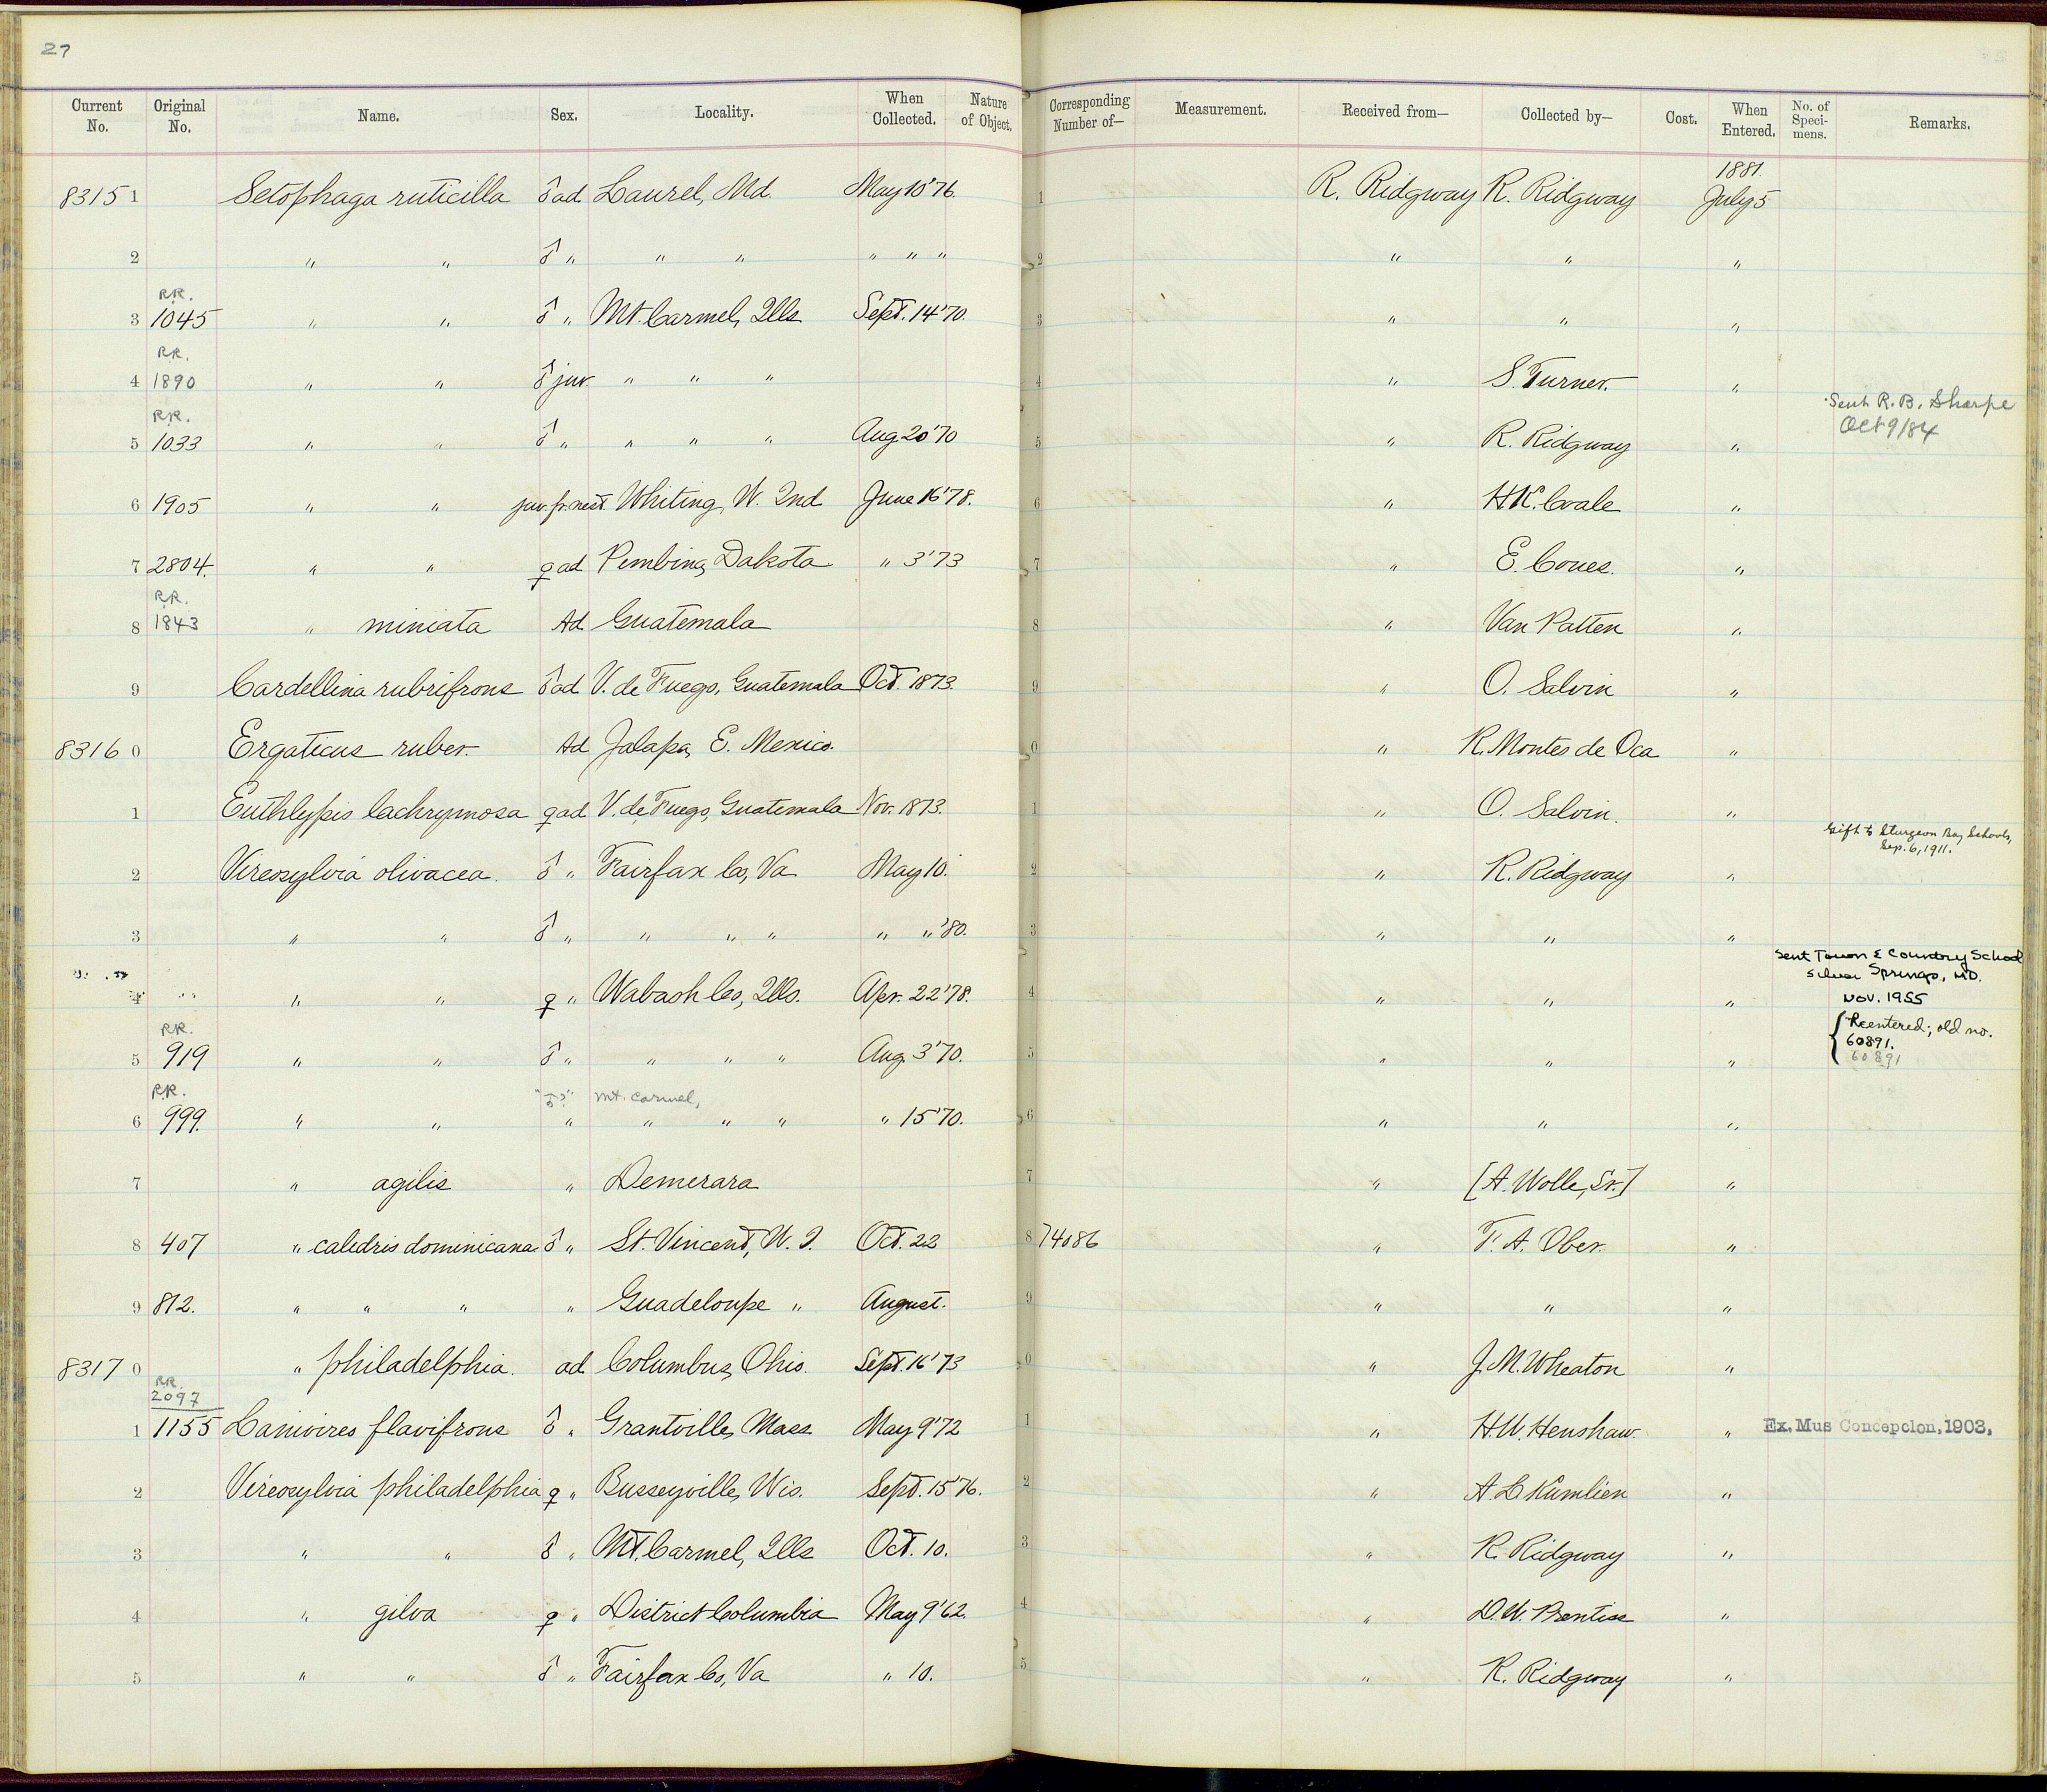 27
Current No. Original No. Name. Sex. Locality. When Collected. Nature of Object. Corresponding Number of— Measurement. Received from— Collected by— Cost. When Entered. No. of Speci-mens. Remarks.
8315 1 Setophaga ruticilla ♂ ad Laurel, Md. May 10 '76. 1 R. Ridgway R. Ridgway 1881. July 5
2 " " ♂ " " " " " " 2 " " "
R.R.
3 1045 " " ♂ " Mt. Carmel, Ills Sept. 14 '70. 3 " " "
R.R.
4 1890 " " ♂ juv. " " " 4 " S. Turner. " Sent R. B. Sharpe
Oct 9/84
R.R.
5 1033 " " ♂ " " " " Aug. 20 '70 5 " R. Ridgway "
6 1905 " " juv. fr. nest Whiting, N. Ind June 16 '78. 6 " H.K. Coale "
7 2804. " " ♀ ad Pembina, Dakota " 3 '73 7 " E. Coues. "
R.R.
8 1843 " miniata Ad Guatemala 8 " Van Patten "
9 Cardellina rubrifrons ♂ ad V. de Fuego, Guatemala Oct. 1873. 9 " O. Salvin "
8316 0 Ergaticus ruber. Ad Jalapa, E. Mexico. 0 " R. Montes de Oca "
1 Euthlypis lachrymosa ♀ ad V. de Fuego, Guatemala Nov. 1873. 1 " O. Salvin. "
Gift to Sturgeon Bay Schools,
Sep. 6, 1911.
2 Vireosylvia olivacea. ♂ " Fairfax Co, Va May 10. 2 " R. Ridgway "
3 " " ♂ " " " " " " '80. 3 " " "
Sent Town & Country School
Silver Springs, MD.
Nov. 1955
4 " " ♀ " Wabash Co, Ills. Apr. 22 '78. 4 " " "
R.R.
5 919 " " ♂ " " " " Aug. 3 '70. 5 " " " { Reentered; old no.
60891.
60891
R.R. "♂?" Mt. Carmel,
6 999. " " " " " " " 15 '70. 6 " " "
7 " agilis " Demerara 7 " [A. Wolle, Sr.] "
8 407 " calidris dominicana ♂ " St. Vincent, W. I. Oct. 22 8 74086 " F. A. Ober. "
9 812. " " " " Guadeloupe " August. 9 " " "
8317 0 " philadelphia. ad Columbus, Ohio. Sept. 16 '73 0 " J. M. Wheaton "
R.R.
2097
1 1155 Lanivireo flavifrons ♂ " Grantville, Mass May 9 '72 1 " H. W. Henshaw. " Ex. Mus Concepcion, 1903.
2 Vireosylvia philadelphia ♀ " Busseyville, Wis. Sept. 15 '76. 2 " A. L. Kumlien "
3 " " ♂ " Mt. Carmel, Ills Oct. 10. 3 " R. Ridgway "
4 " gilva ♀ " District Columbia May 9 '62. 4 " D. W. Prentiss "
5 " " ♂ " Fairfax Co, Va " 10. 5 " R. Ridgway "